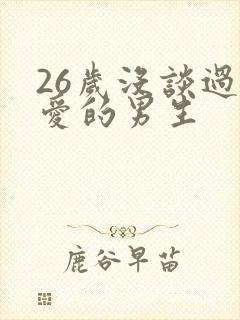 26歲沒談過
愛的男生
鹿谷早苗